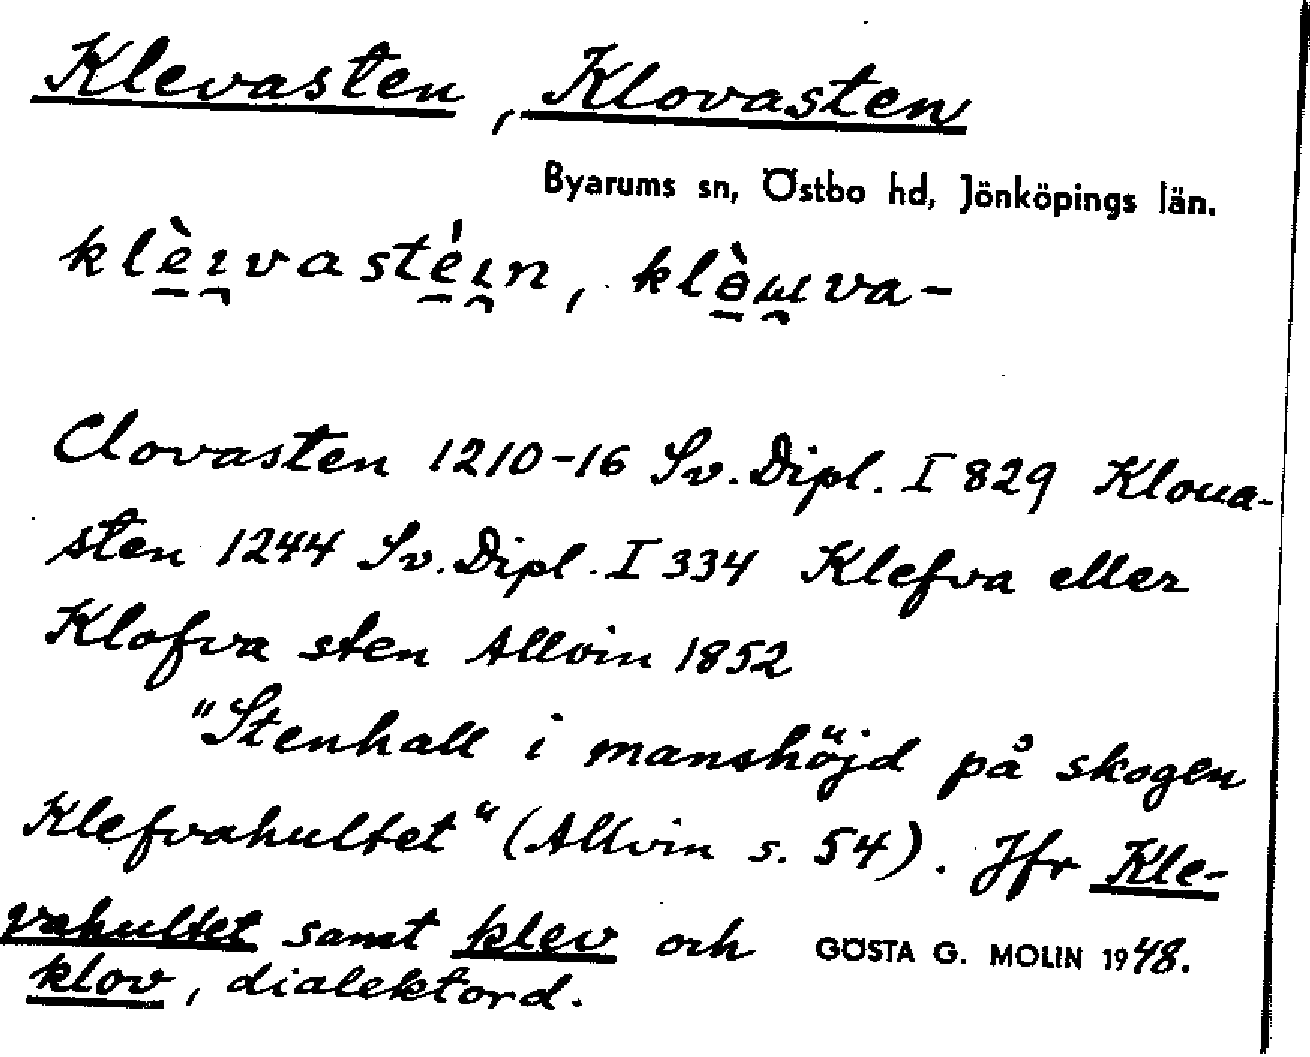 Klevasten, Klovasten
Byarums sn, Östbo hd, Jönköpings län.
Clovasten 1210-16 Sv. Dipl. I 829 Kloua-
sten 1244 Sv. Dipl. I 334 Klefva eller
Klofva sten Allvin 1852
"Stenhall i manshöjd på skogen
Klefvahultet" (Allvin s. 54). Jfr Kle-
vahultet samt klev och
klov, dialektord.
GÖSTA G. MOLIN 1948.